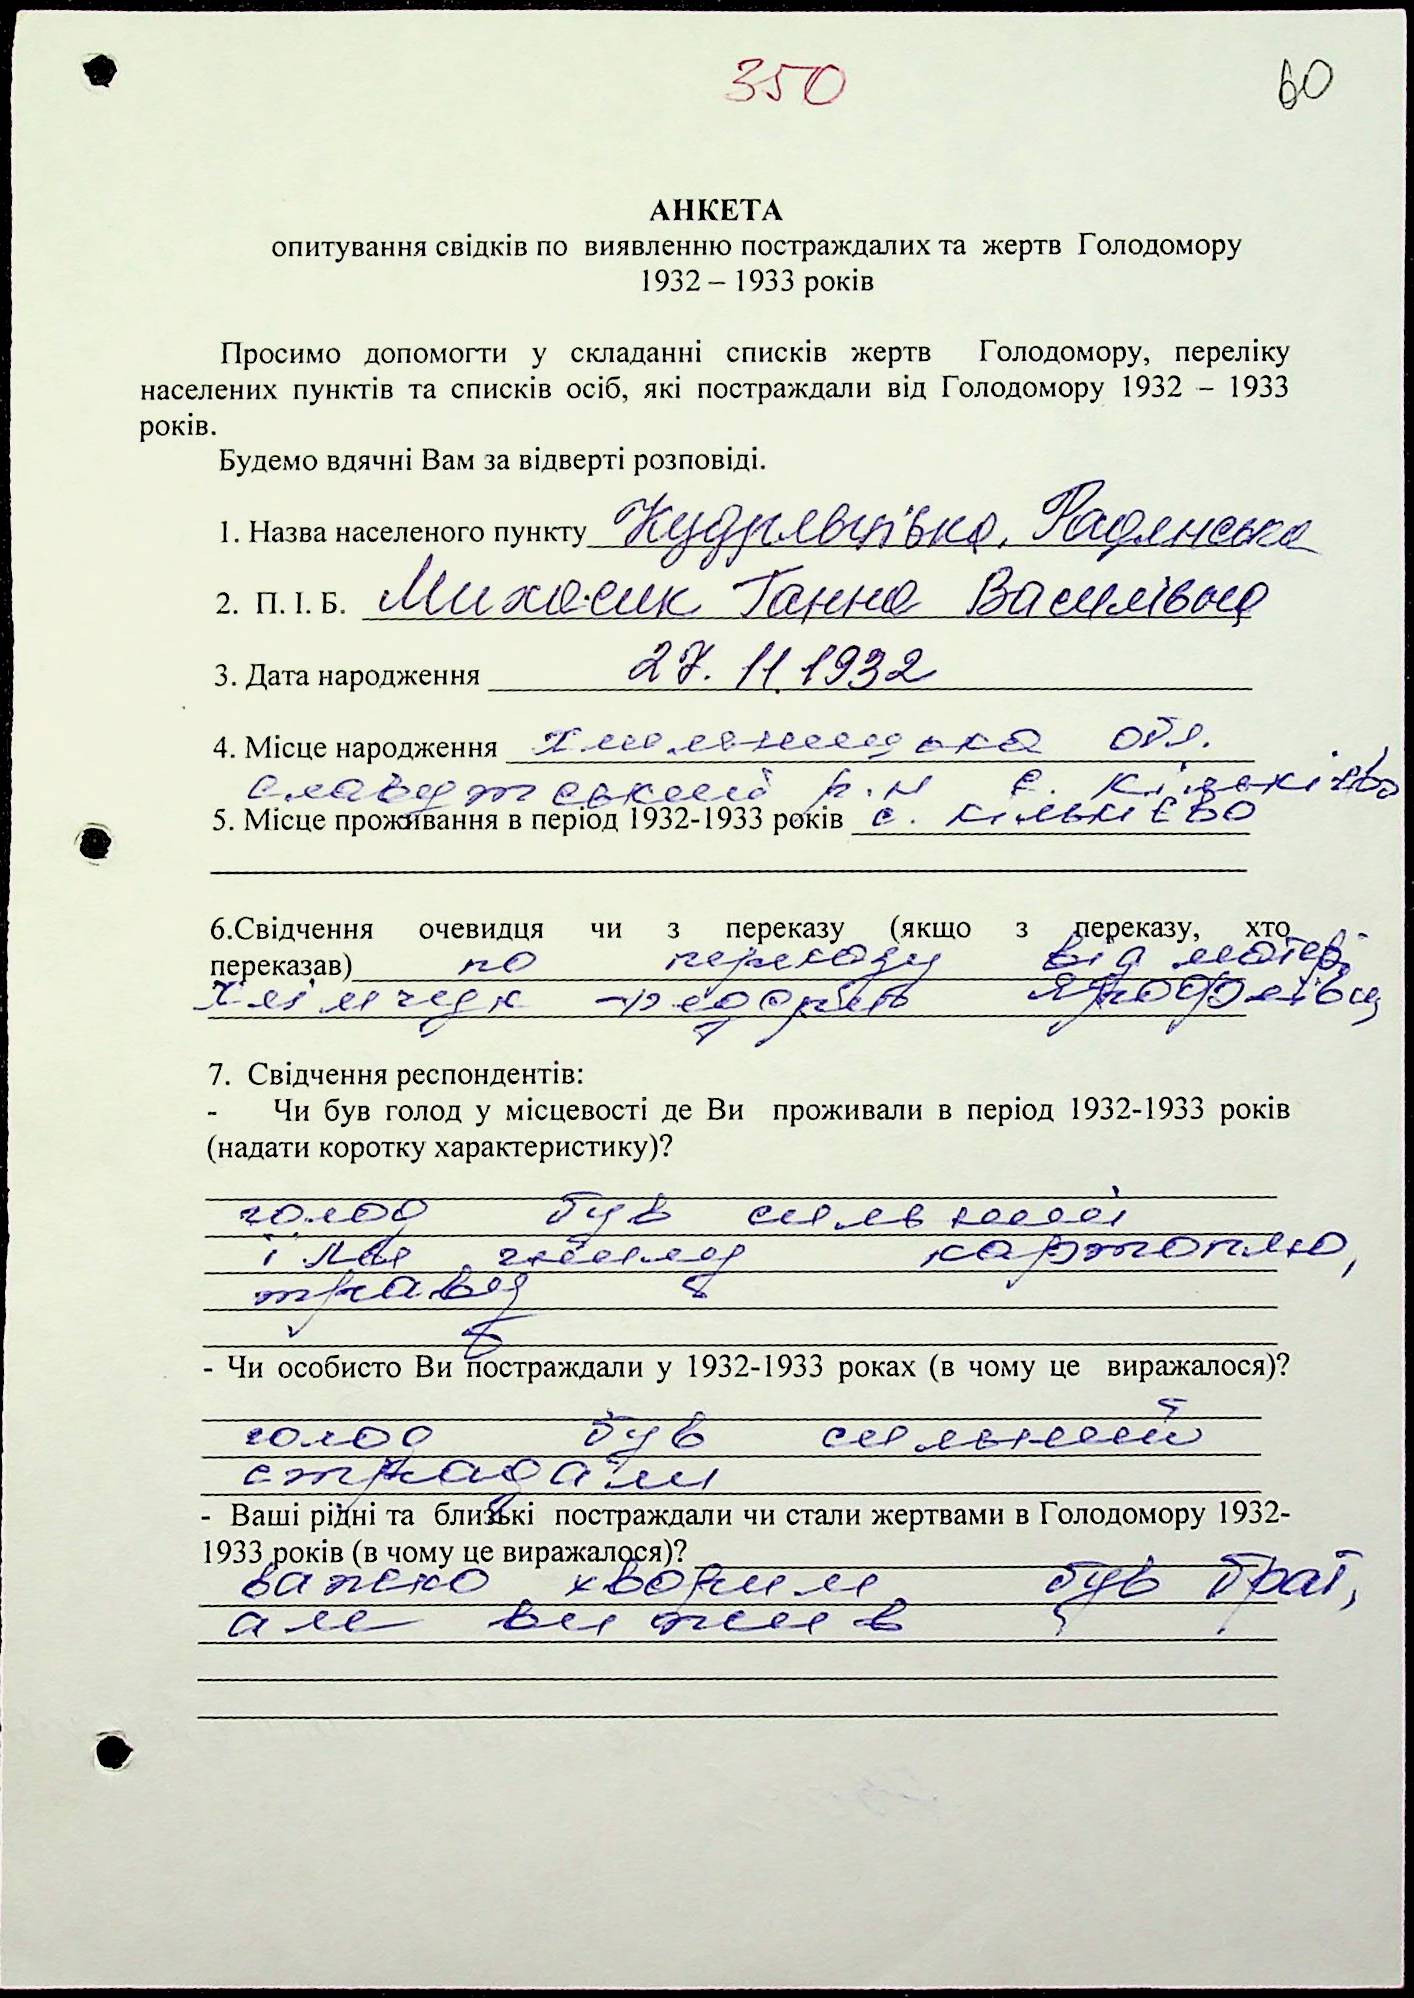 350
60
АНКЕТА
опитування свідків по виявленню постраждалих та жертв Голодомору
1932 – 1933 років
Просимо допомогти у складанні списків жертв Голодомору, переліку
населених пунктів та списків осіб, які постраждали від Голодомору 1932 – 1933
років.
Будемо вдячні Вам за відверті розповіді.
1. Назва населеного пункту Кудрявцівка, Радянська
2. П. І. Б. Ганна Василівна
3. Дата народження 27.11.1932
4. Місце народження Хмельницька обл.
Славутський р.н с.
5. Місце проживання в період 1932-1933 років с. Кількієво
6.Свідчення очевидця чи з переказу (якщо з переказу, хто
переказав) по переказу від матері
Клімчук
7. Свідчення респондентів:
- Чи був голод у місцевості де Ви проживали в період 1932-1933 років
(надати коротку характеристику)?
голод був сильний
їли гнилу картоплю,
траву
- Чи особисто Ви постраждали у 1932-1933 роках (в чому це виражалося)?
голод був сильний
страдали
- Ваші рідні та близькі постраждали чи стали жертвами в Голодомору 1932-
1933 років (в чому це виражалося)?
важко хворим був брат,
але вижив